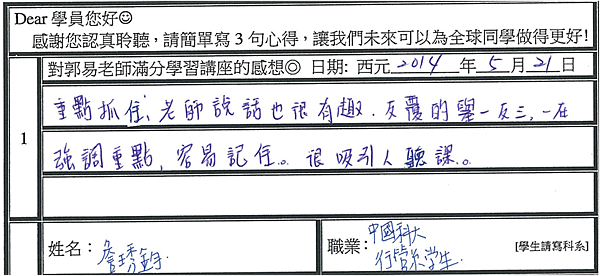 Dear 學員您好☺
感謝您認真聆聽,請簡單寫 3 句心得,讓我們未來可以為全球同學做得更好!
對郭易老師滿分學習講座的感想◎ 日期: 西元 2014 年 5 月 21 日
1
重點抓住、老師說話也很有趣、反覆的舉一反三,一在
強調重點,容易記住。。很吸引人聽課。。
姓名:詹琇
職業:中國科大
行管系學生. [學生請寫科系]